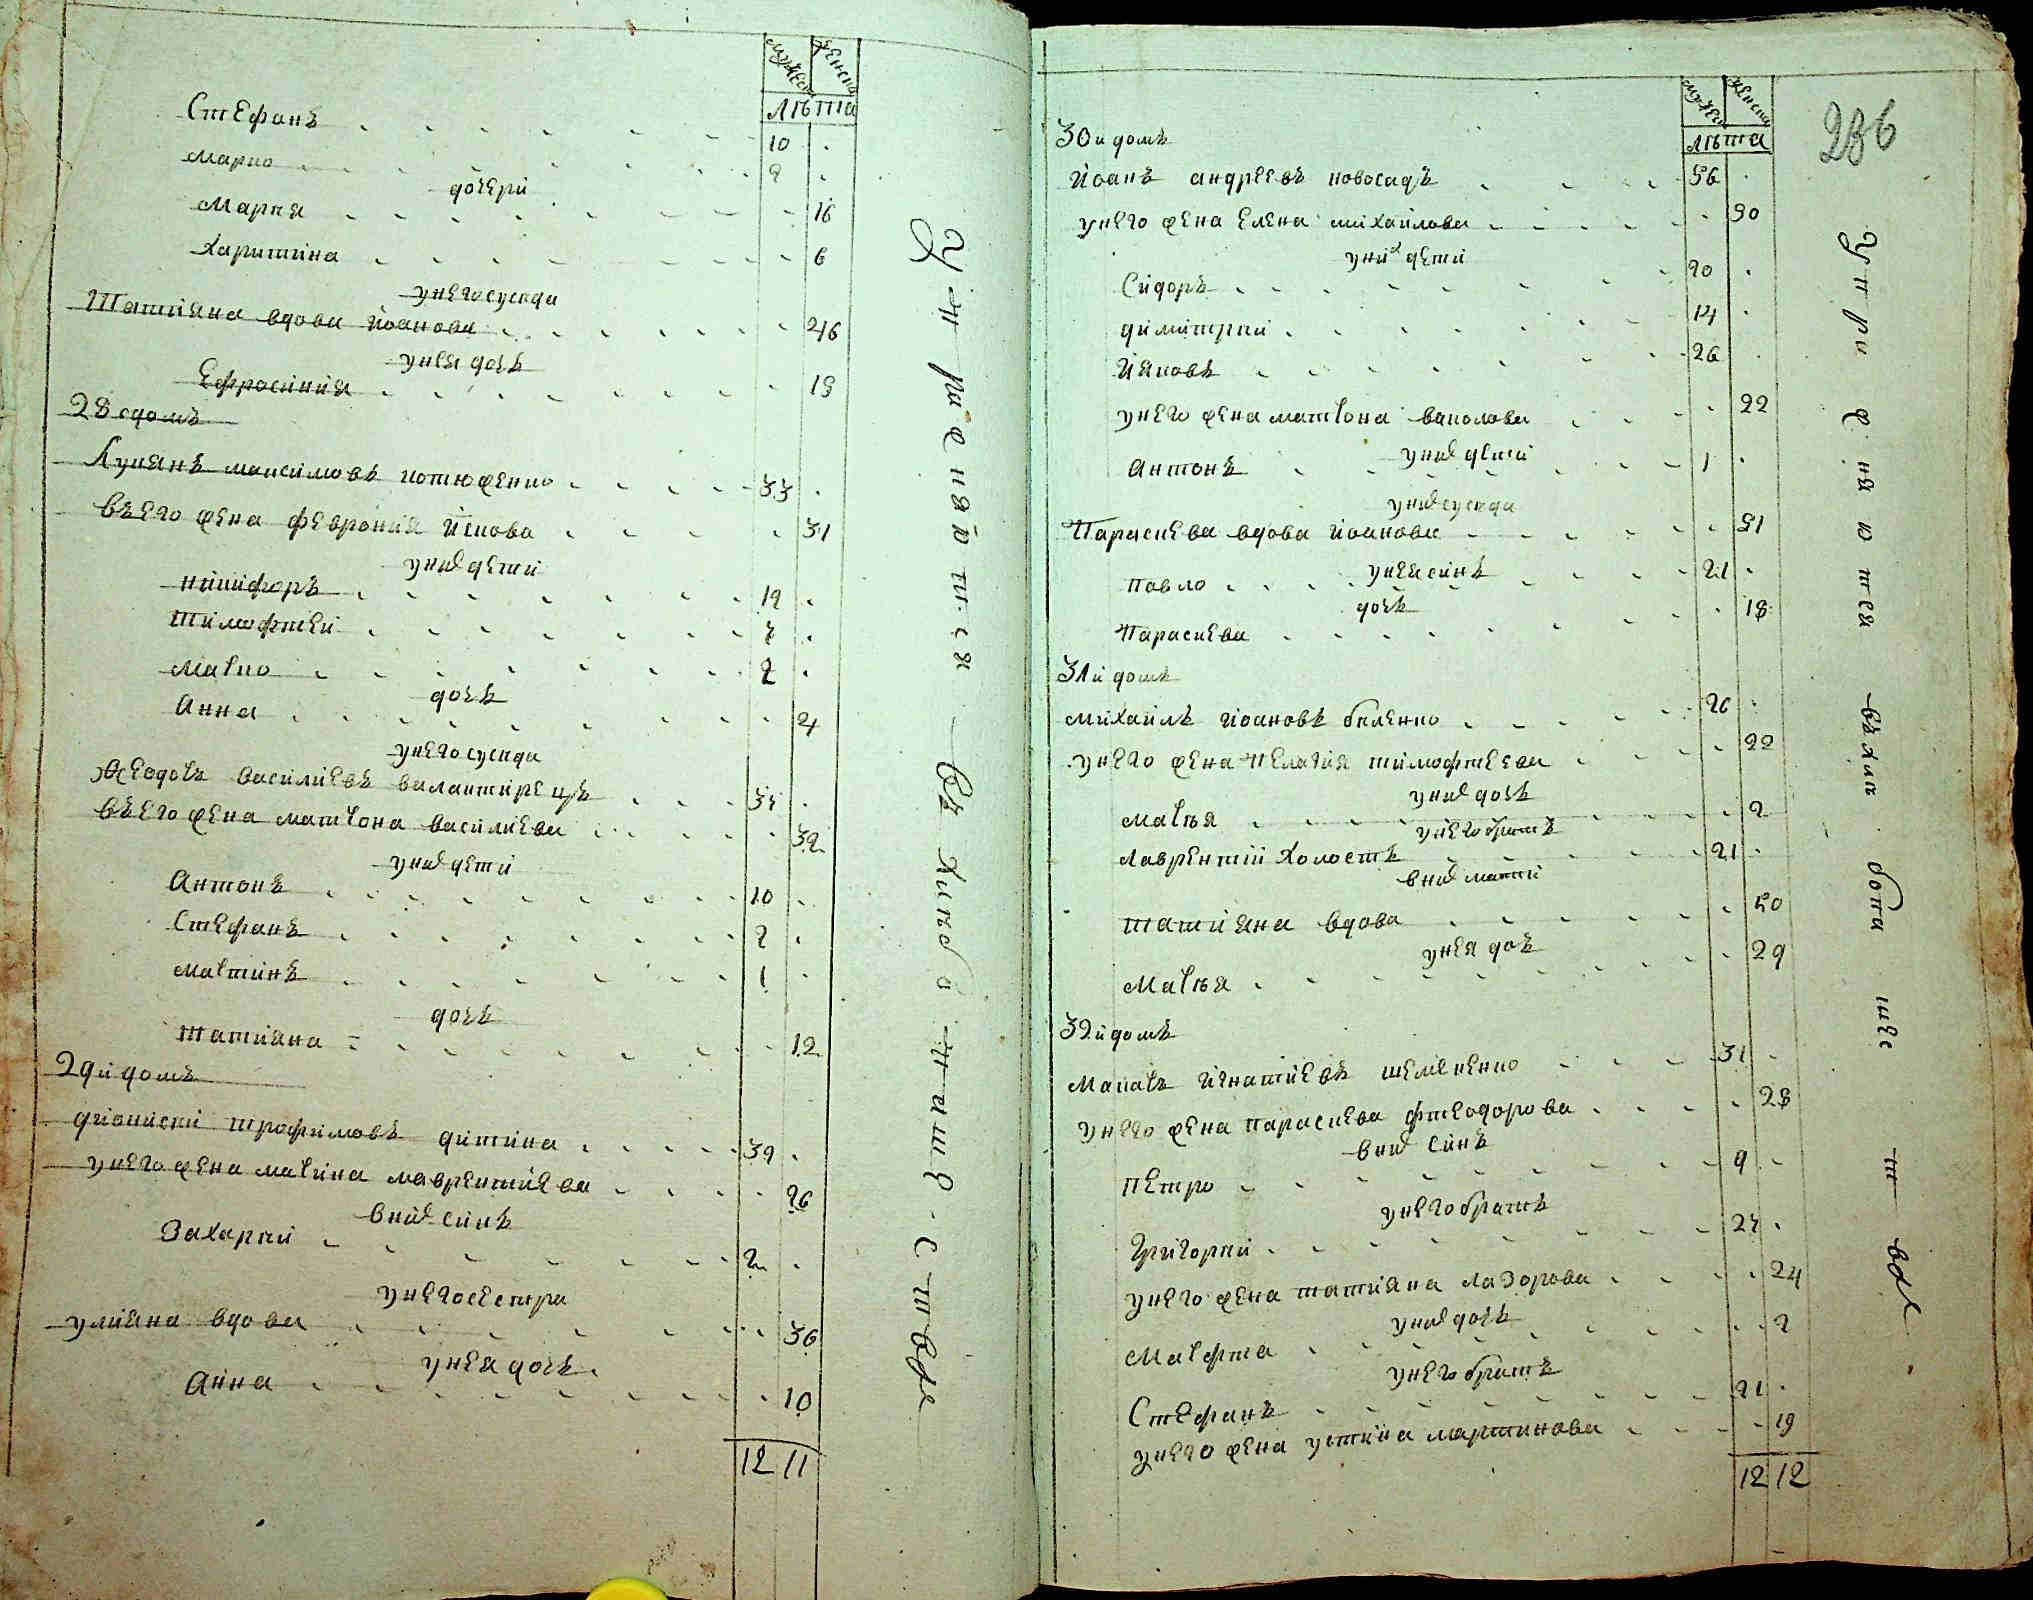 мужеск женска
лѣта
Стефанъ 10
Марко 2
дочери
Марѣя 16
Харитина 6
унего суседи
Татіяна вдова Іоанова 46
унея дочъ
Ефросинія 19
28 домъ
Лукянъ максимовъ котюженко 33
въего жена феврония Йякова 31
уних дети
никифоръ 12
тимофтей 7
марко 2
дочъ
Анна 4
унего суседи
Федотъ Василиевъ 35
въего жена матрона василиева 32
уних дети
Антонъ 10
Стефанъ 2
мартинъ 1
дочъ
татияна 12
29й домъ
дионисий трофимовъ дитина 39
унего жена марина лаврентиева 26
вних синъ
Захарий 2
унего сестра
улияна вдова 36
унея дочъ
Анна 10
12 11
236
мужеск женска
лѣта
30й домъ
Йоанъ андреевъ новосадъ 56
унего жена Елена михайлова 50
уних дети
Сидоръ 20
димитрий 14
Йяковъ 26
унего жена матрона 22
уних дети
Антонъ 1
уних суседи
Параскева вдова йоанова 51
унея синъ
павло 21
дочъ
Параскева 18
31й домъ
михайлъ йоановъ беленко 26
унего жена пелагия тимофтеева 22
уних дочъ
Марѣя 2
унего братъ
лаврентий холостъ 21
вних матти
татияна вдова 50
унея доч
Марѣя 29
32й домъ
Макаръ игнатиевъ 31
унего жена параскева фтеодорова 28
вних синъ
петро 9
унего братъ
григорий 25
унего жена татияна лазорова 24
уних дочъ
Марфта 2
унего братъ
Стефанъ 21
унего жена устина мартинова 19
12 12